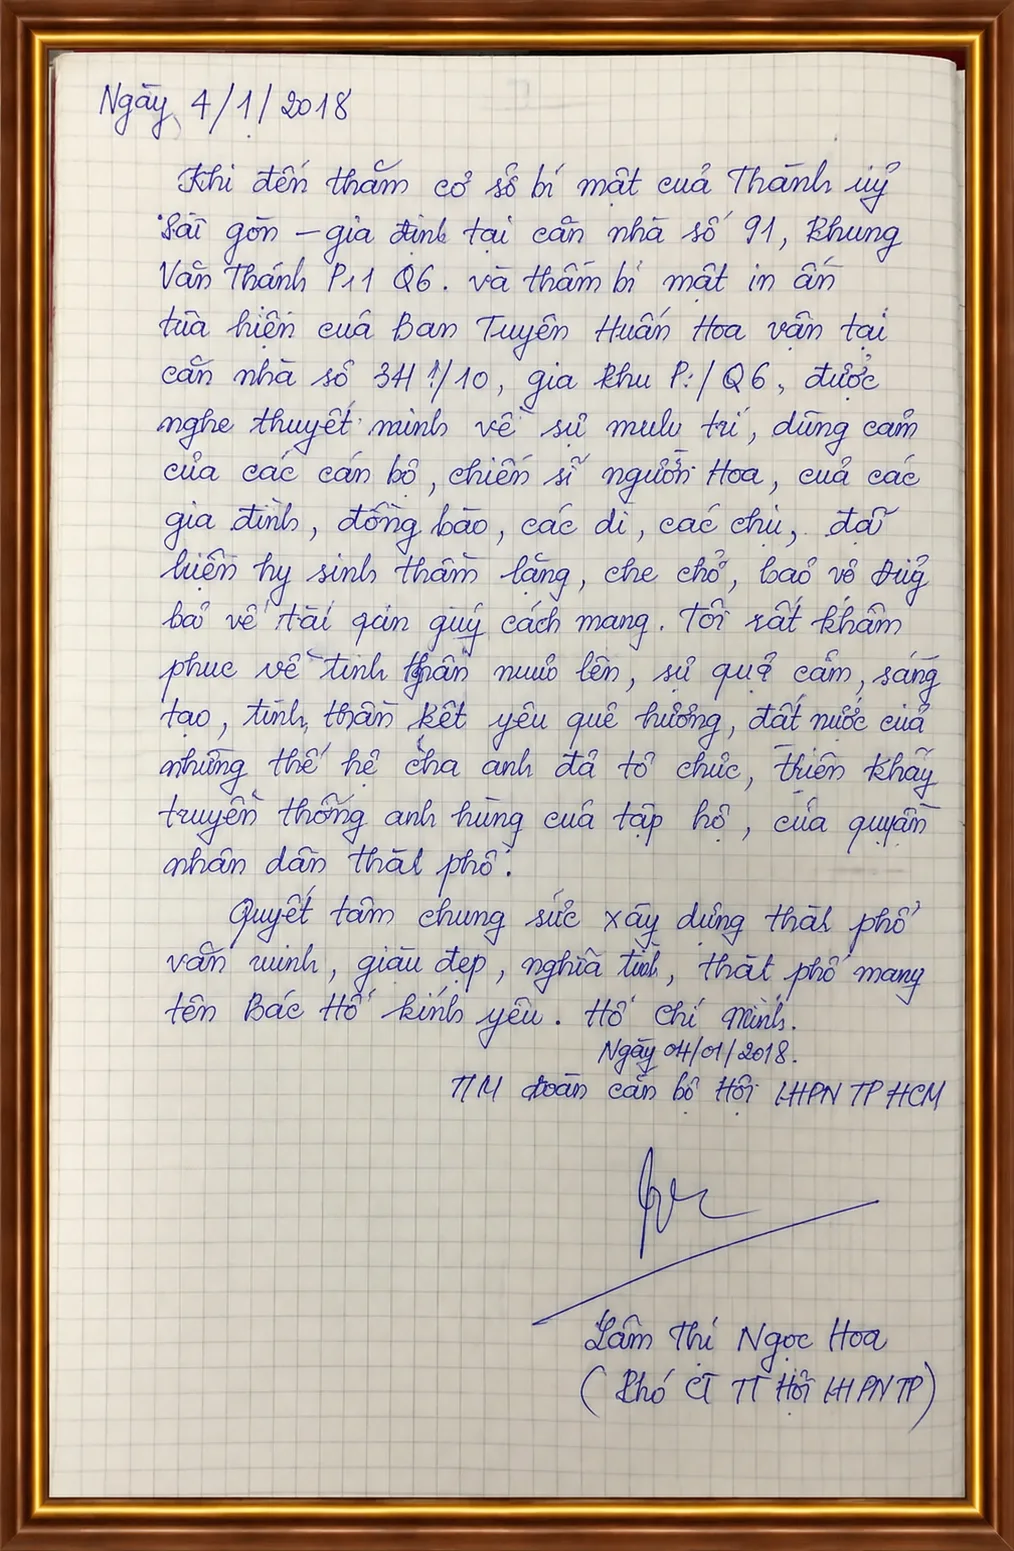 Ngày 4/1/2018
Khi đến thăm cơ sở bí mật cuả Thành uỷ
Sài gòn – gia định tại căn nhà số 91, Khung
Văn Thánh P11 Q6. và thăm bí mật in ấn
của Ban Tuyên Huấn Hoa vận tại
căn nhà số /10, gia khu Q6, được
nghe thuyết minh về sự mưu trí, dũng cảm
của các cán bộ, chiến sĩ người Hoa, cuả các
gia đình, đồng bào, các dì, các chú, đã
hy sinh thầm lặng, che chở, bảo vệ
bả vê tài quí cách mang. Tôi rất khâm
phuc về tinh thần lên, sự quả cảm, sáng
tạo, tinh thần kết yêu quê hương, đất nước của
những thế hệ cha anh đã tổ chức,
truyền thống anh hùng cuả tập hộ, của
nhân dân phố.
Quyết tâm chung sức xây dựng phố
văn minh, giàu đẹp, nghĩa tình, phố mang
tên Bác Hồ kính yêu. Hồ Chí Minh.
Ngày 04/01/2018.
TM đoàn cán bộ Hội LHPN TP HCM
Lâm Thị Ngọc Hoa
(Phó CT TT Hội LHPN TP)